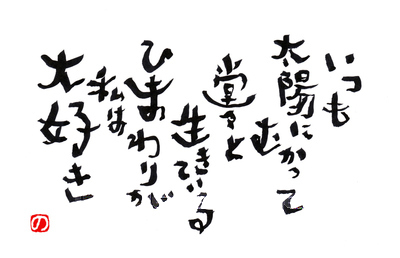 いつも
太陽にむかって
堂々と
生きている
ひまわりが
私は
大好き
の